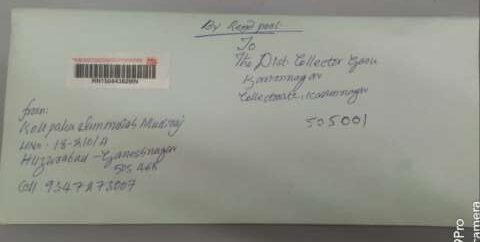 By Regd post
To
The Dist. Collector Garu
Karimnagar
Collectorate, Karimnagar
505001
from:
Kolipaka Mudiraj
HNo: 18-210/A
Huzurabad - Ganeshnagar
505 468
Cell 9347273007
9Pro
camera